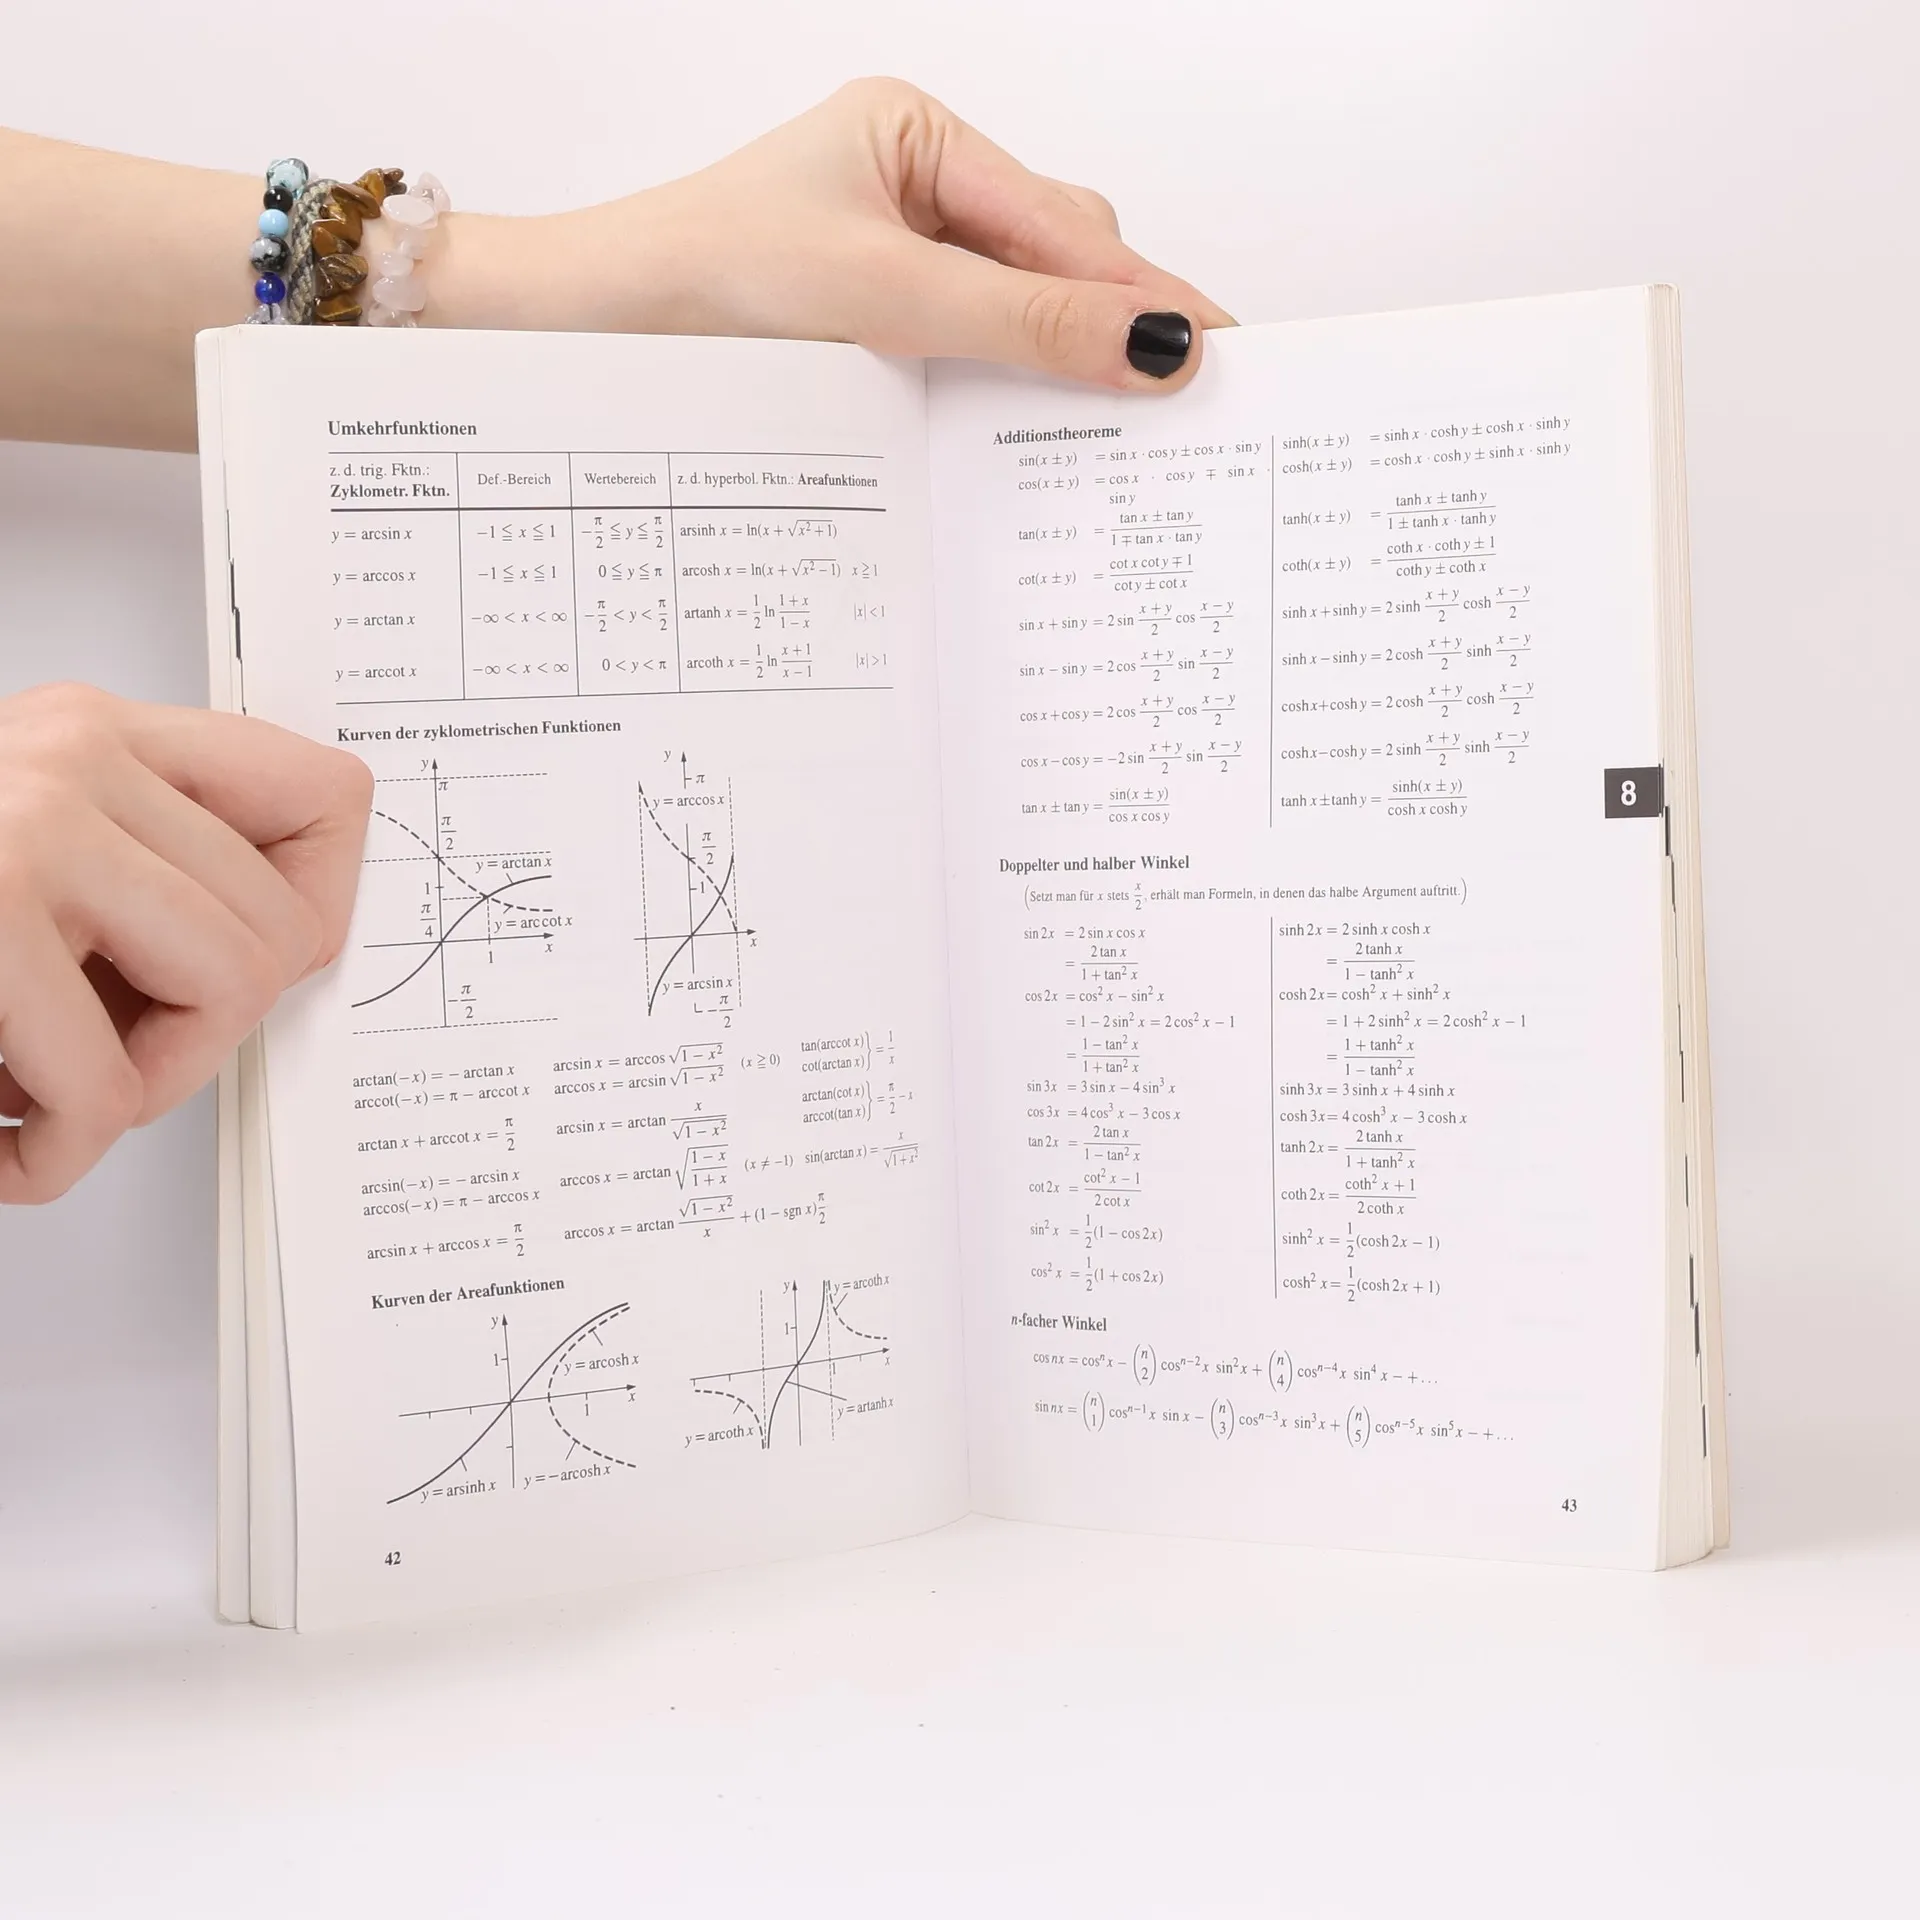 Umkehrfunktionen
z. d. trig. Fktn.: Zyklometr. Fktn. | Def.-Bereich | Wertebereich | z. d. hyperbol. Fktn.: Areafunktionen
y = arcsin x | −1 ≦ x ≦ 1 | −π/2 ≦ y ≦ π/2 | arsinh x = ln(x + √(x² + 1))
y = arccos x | −1 ≦ x ≦ 1 | 0 ≦ y ≦ π | arcosh x = ln(x + √(x² − 1)) x ≧ 1
y = arctan x | −∞ < x < ∞ | −π/2 < y < π/2 | artanh x = 1/2 ln (1 + x)/(1 − x) |x| < 1
y = arccot x | −∞ < x < ∞ | 0 < y < π | arcoth x = 1/2 ln (x + 1)/(x − 1) |x| > 1
Kurven der zyklometrischen Funktionen
y
π
π/2
y = arctan x
1
π/4
y = arc cot x
x
1
−π/2
y
π
y = arccos x
π/2
1
x
y = arcsin x
−π/2
arctan(−x) = − arctan x
arccot(−x) = π − arccot x
arctan x + arccot x = π/2
arcsin(−x) = − arcsin x
arccos(−x) = π − arccos x
arcsin x + arccos x = π/2
arcsin x = arccos √(1 − x²)
arccos x = arcsin √(1 − x²) (x ≧ 0)
arcsin x = arctan x/√(1 − x²)
arccos x = arctan √((1 − x)/(1 + x)) (x ≠ −1)
arccos x = arctan √(1 − x²)/x + (1 − sgn x)π/2
tan(arccot x)
cot(arctan x) } = 1/x
arctan(cot x)
arccot(tan x) } = π/2 − x
sin(arctan x) = x/√(1+x²)
Kurven der Areafunktionen
y
1
y = arcosh x
x
1
y = arsinh x
y = − arcosh x
y
y = arcoth x
1
x
1
y = arcoth x
y = artanh x
42
Additionstheoreme
sin(x ± y) = sin x · cos y ± cos x · sin y
cos(x ± y) = cos x · cos y ∓ sin x ·
sin y
tan(x ± y) = (tan x ± tan y)/(1 ∓ tan x · tan y)
cot(x ± y) = (cot x cot y ∓ 1)/(cot y ± cot x)
sin x + sin y = 2 sin (x + y)/2 cos (x − y)/2
sin x − sin y = 2 cos (x + y)/2 sin (x − y)/2
cos x + cos y = 2 cos (x + y)/2 cos (x − y)/2
cos x − cos y = −2 sin (x + y)/2 sin (x − y)/2
tan x ± tan y = sin(x ± y)/(cos x cos y)
sinh(x ± y) = sinh x · cosh y ± cosh x · sinh y
cosh(x ± y) = cosh x · cosh y ± sinh x · sinh y
tanh(x ± y) = (tanh x ± tanh y)/(1 ± tanh x · tanh y)
coth(x ± y) = (coth x · coth y ± 1)/(coth y ± coth x)
sinh x + sinh y = 2 sinh (x + y)/2 cosh (x − y)/2
sinh x − sinh y = 2 cosh (x + y)/2 sinh (x − y)/2
cosh x + cosh y = 2 cosh (x + y)/2 cosh (x − y)/2
cosh x − cosh y = 2 sinh (x + y)/2 sinh (x − y)/2
tanh x ± tanh y = sinh(x ± y)/(cosh x cosh y)
8
Doppelter und halber Winkel
(Setzt man für x stets x/2, erhält man Formeln, in denen das halbe Argument auftritt.)
sin 2x = 2 sin x cos x
= 2 tan x/(1 + tan² x)
cos 2x = cos² x − sin² x
= 1 − 2 sin² x = 2 cos² x − 1
= (1 − tan² x)/(1 + tan² x)
sin 3x = 3 sin x − 4 sin³ x
cos 3x = 4 cos³ x − 3 cos x
tan 2x = 2 tan x/(1 − tan² x)
cot 2x = (cot² x − 1)/(2 cot x)
sin² x = 1/2(1 − cos 2x)
cos² x = 1/2(1 + cos 2x)
sinh 2x = 2 sinh x cosh x
= 2 tanh x/(1 − tanh² x)
cosh 2x = cosh² x + sinh² x
= 1 + 2 sinh² x = 2 cosh² x − 1
= (1 + tanh² x)/(1 − tanh² x)
sinh 3x = 3 sinh x + 4 sinh x
cosh 3x = 4 cosh³ x − 3 cosh x
tanh 2x = 2 tanh x/(1 + tanh² x)
coth 2x = (coth² x + 1)/(2 coth x)
sinh² x = 1/2(cosh 2x − 1)
cosh² x = 1/2(cosh 2x + 1)
n-facher Winkel
cos nx = cosⁿ x − (n 2) cosⁿ⁻² x sin² x + (n 4) cosⁿ⁻⁴ x sin⁴ x − + …
sin nx = (n 1) cosⁿ⁻¹ x sin x − (n 3) cosⁿ⁻³ x sin³ x + (n 5) cosⁿ⁻⁵ x sin⁵ x − + …
43